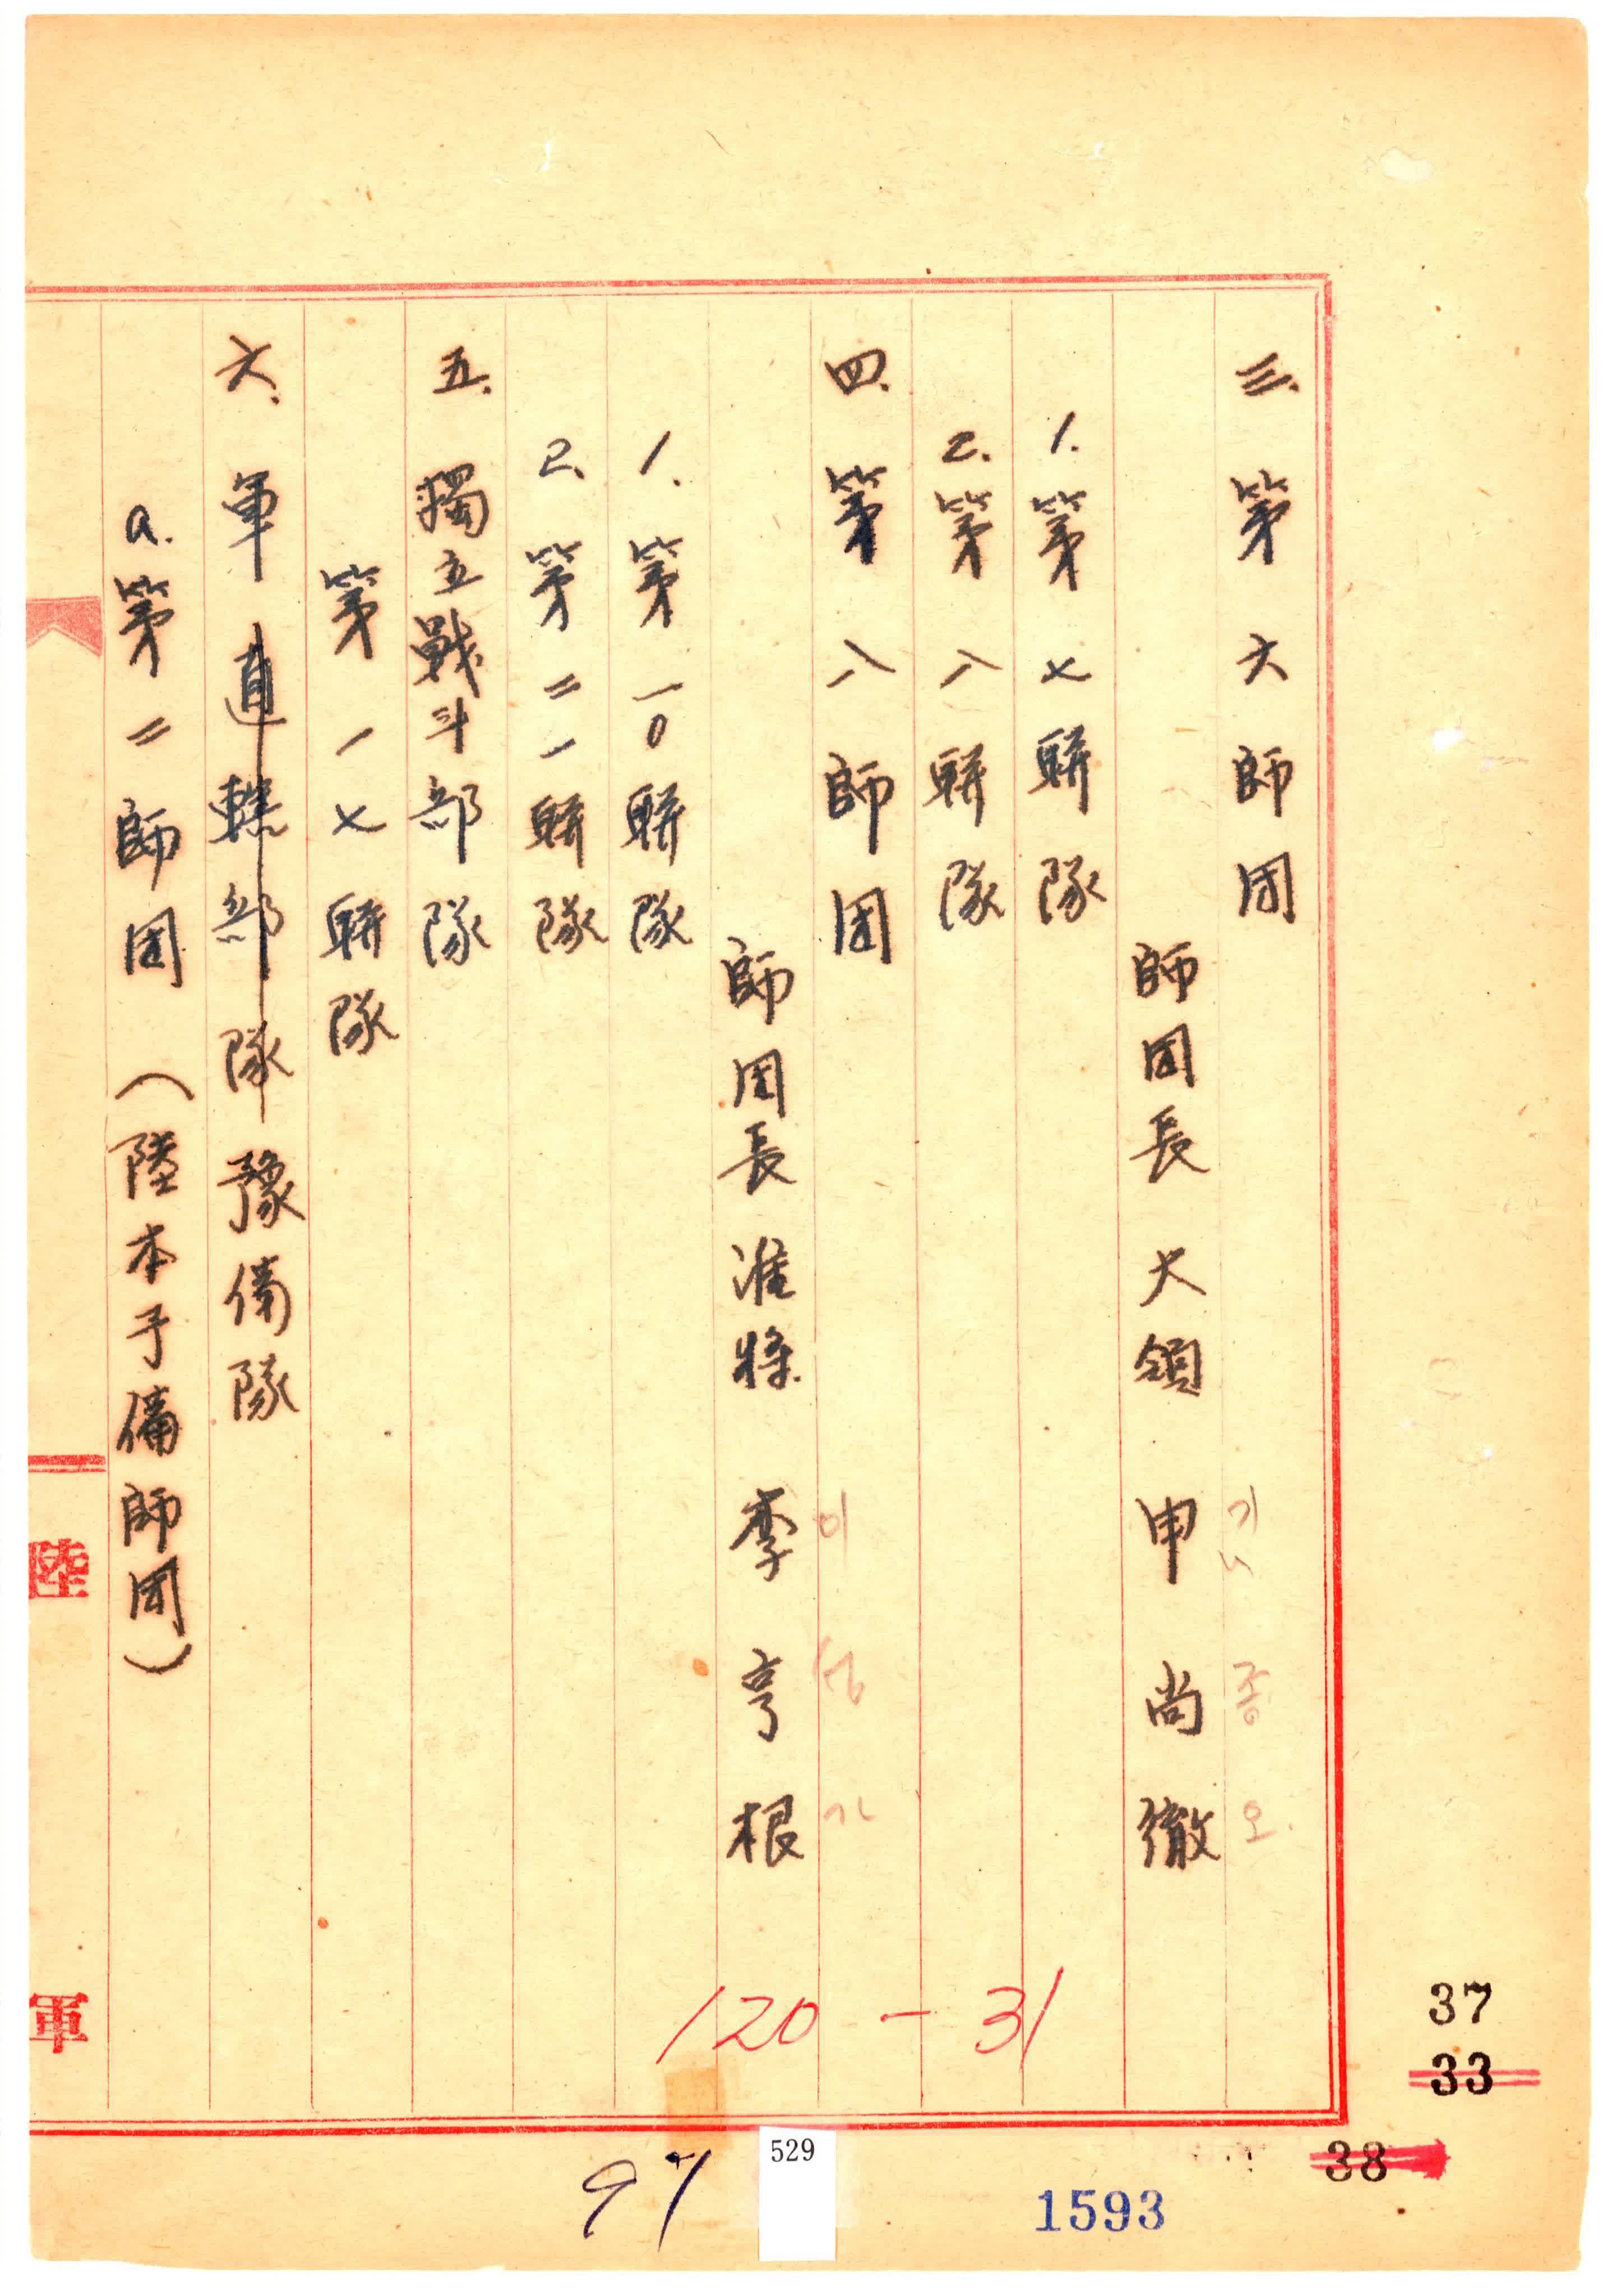 三. 第六師団
師団長 大領 申尚徹
기 종 오.
1. 第七聯隊
2. 第八聯隊
四. 第八師団
師団長 准將 李亨根
이 성 가
1. 第一0聯隊
2. 第二一聯隊
五. 獨立戰斗部隊
第一七聯隊
六. 軍直轄部隊豫備隊
a. 第二師団 (陸本予備師団)
陸
軍
120 - 31
37
33
38
97
529
1593